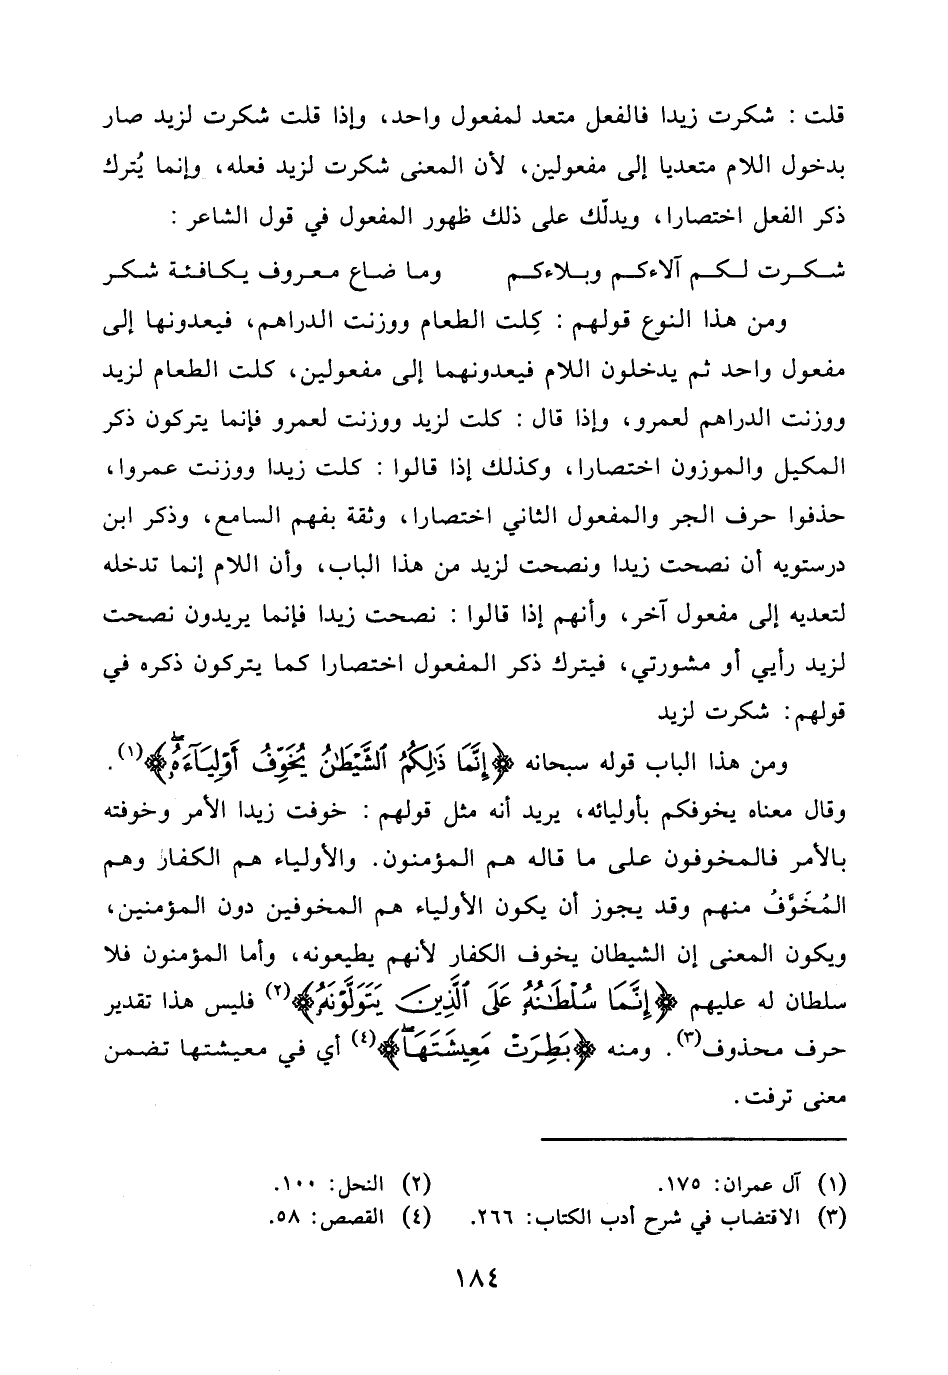 قلت : شكرت زيدا فالفعل متعد لمفعول واحد، وإذا قلت شكرت لزيد صار
بدخول اللام متعديا إلى مفعولين، لأن المعنى شكرت لزيد فعله، وإنما يُترك
ذكر الفعل اختصارا، ويدلّك على ذلك ظهور المفعول في قول الشاعر :
شكرت لكم آلاءكم وبلاءكم وما ضاع معروف يكافئة شكر
ومن هذا النوع قولهم : كِلت الطعام ووزنت الدراهم، فيعدونها إلى
مفعول واحد ثم يدخلون اللام فيعدونهما إلى مفعولين، كلت الطعام لزيد
ووزنت الدراهم لعمرو، وإذا قال : كلت لزيد ووزنت لعمرو فإنما يتركون ذكر
المكيل والموزون اختصارا، وكذلك إذا قالوا : كلت زيدا ووزنت عمروا،
حذفوا حرف الجر والمفعول الثاني اختصارا، وثقة بفهم السامع، وذكر ابن
درستويه أن نصحت زيدا ونصحت لزيد من هذا الباب، وأن اللام إنما تدخله
لتعديه إلى مفعول آخر، وأنهم إذا قالوا : نصحت زيدا فإنما يريدون نصحت
لزيد رأيي أو مشورتي، فيترك ذكر المفعول اختصارا كما يتركون ذكره في
قولهم: شكرت لزيد
ومن هذا الباب قوله سبحانه ﴿إِنَّمَا ذَٰلِكُمُ ٱلشَّيْطَٰنُ يُخَوِّفُ أَوْلِيَآءَهُۥۖ﴾(١).
وقال معناه يخوفكم بأوليائه، يريد أنه مثل قولهم : خوفت زيدا الأمر وخوفته
بالأمر فالمخوفون على ما قاله هم المؤمنون. والأولياء هم الكفار وهم
المُخَوَّفُ منهم وقد يجوز أن يكون الأولياء هم المخوفين دون المؤمنين،
ويكون المعنى إن الشيطان يخوف الكفار لأنهم يطيعونه، وأما المؤمنون فلا
سلطان له عليهم ﴿إِنَّمَا سُلْطَٰنُهُۥ عَلَى ٱلَّذِينَ يَتَوَلَّوْنَهُۥ﴾(٢) فليس هذا تقدير
حرف محذوف(٣). ومنه ﴿بَطِرَتْ مَعِيشَتَهَاۖ﴾(٤) أي في معيشتها تضمن
معنى ترفت.
(١) آل عمران: ١٧٥. (٢) النحل: ١٠٠.
(٣) الاقتضاب في شرح أدب الكتاب: ٢٦٦. (٤) القصص: ٥٨.
١٨٤